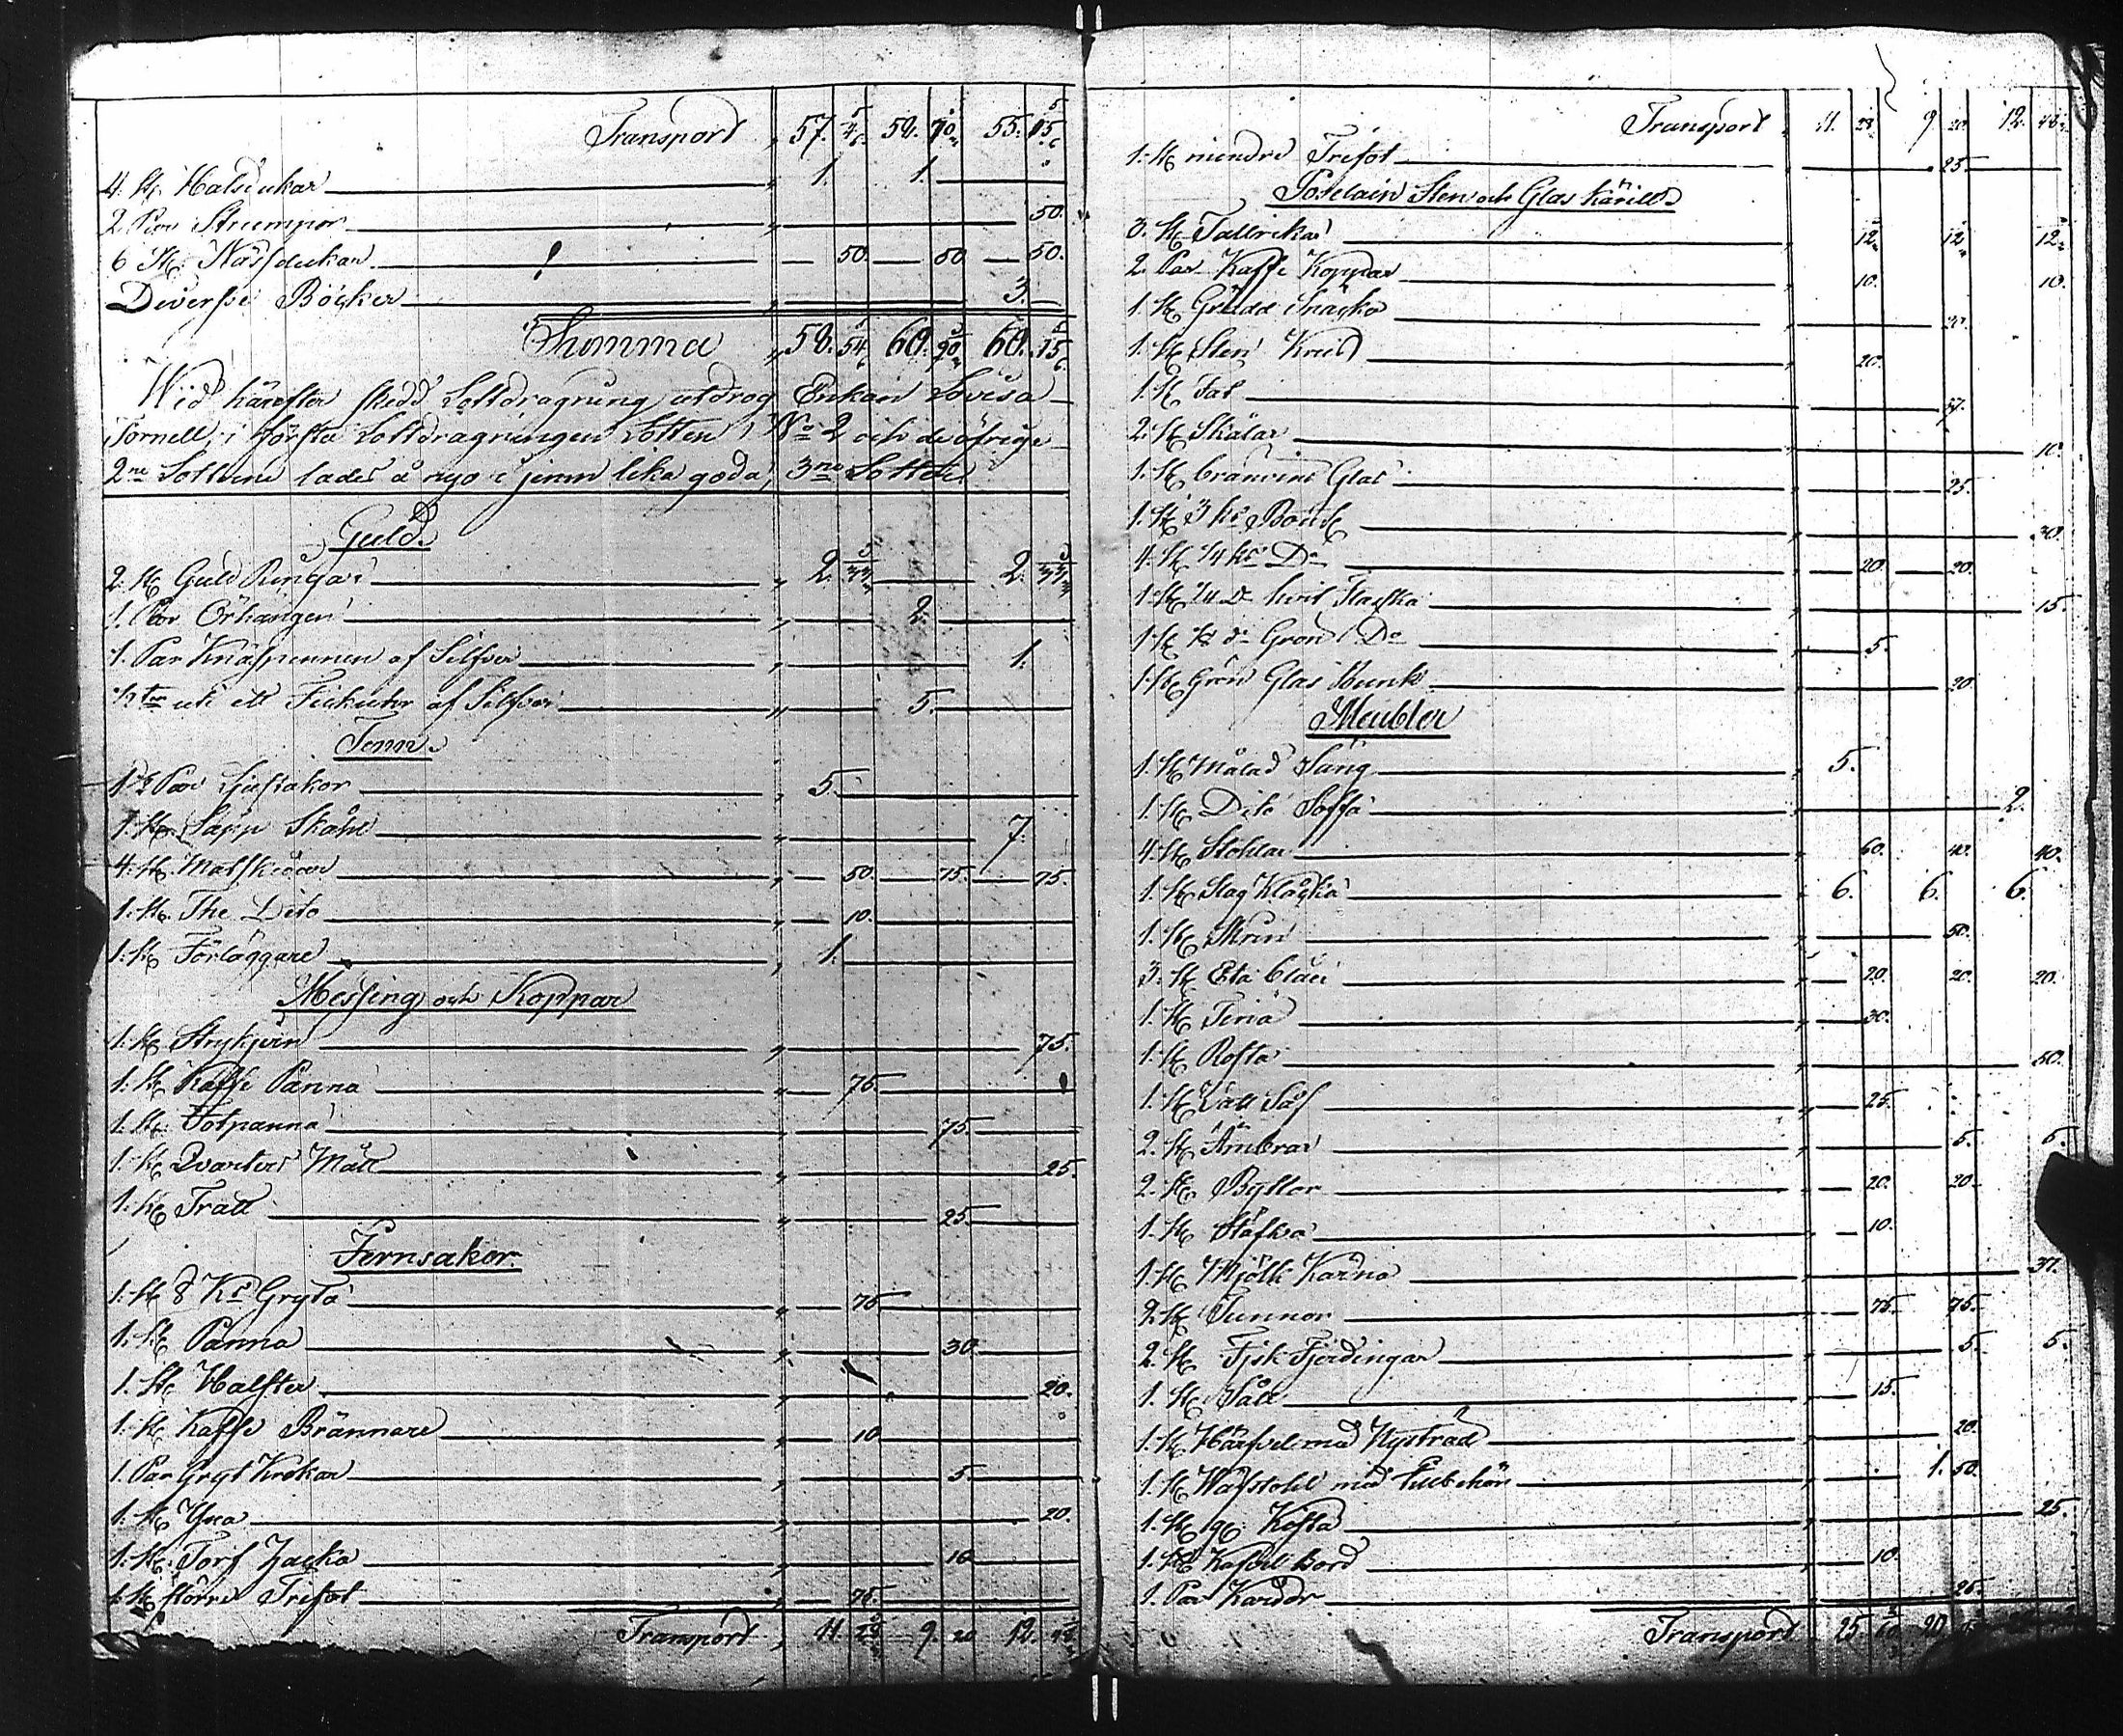 Transport „ 57. 58. 70 55. 15
4. St. Halsdukar „ 1. 1.
2. Par Strumpor „ 50.
6 St. Näsdukar 50. 50 50.
Diverse Böcker „ 3.
Summa „ 58. 54 60. 90 60. 15
Wid härefter skedd Lottdragning utdrog Enkan Lovisa
Tornell, i första Lottdragningen Lotten No 2 och de öfrige
2ne Lotterne lades å nyo i jemn lika goda 3ne Lotter
Guld.
2. St. Guld Ringar „ 2. 2.
1. Par Örhängen „ 2.
1. Par Knäspennen af Silfver „ 1.
uti ett Fickuhr af Silfver „ 5.
Tenn.
1 Par Ljusstakar „ 5.
1. St. Såpp Skåhl „ 7.
4. St. Matskedar „ 50. 75. 75.
1. St. The Dito „ 10.
1. St. Förläggare „ 1.
Messing och Koppar
1. St. Strykjern „ 75.
1. St. Kaffe Panna „ 75.
1. St. Fotpanna „ 75.
1. St. Qvarters Mått „ 25.
1. St. Tratt „ 25.
Jernsaker.
1. St. 8 Ks Gryta „ 75
1. St. Panna „ 30.
1. St. Halster „ 20.
1. St. Kaffe Brännare „ 10
1. Par Gryt Krokar „ 5.
1. St. Yxa „ 20.
1. St. Torf Hacka „ 10
1. St. större Trefot „ 75.
Transport „ 11. 28 9. 20 12. 48
Transport „ 11. 28 9 20. 12. 48
1. St. mindre Trefot 25.
Poselain Sten och Glas kärill
3. St. Tallrikar „ 12 12 12
2. Par Kaffe Koppar „ 10. 10.
1. St. Grädd Snäcka „ 20.
1. St. Sten Krus „ 20.
1. St. Fat „ 17.
2. St. Skålar „ 10.
1. St. bränvins Glas „ 25.
1. St. 3 ks „ 30.
4. St. 1/4 ks Do „ 20. 20.
1. St. 1/4 Do hvit Flaska „ 15.
1. St. do Grön Do „ 5.
1. St. Grön Glas Bunk „ 20.
Meubler
1. St. Målad Säng „ 5.
1. St. Dito Soffa „ 2.
4. St. Stolar „ 60. 40. 40.
1. St. Slag Klocka „ 6. 6. 6.
1. St. Skrin „ 50.
3. St. „ 20. 20. 20.
1. St. Tina „ 30.
1. St. „ 50.
1. St. „ 25.
2. St. Ämbrar „ 5. 5.
2. St. Byttor „ 20. 20.
1. St. Stäfva „ 10.
1. St. Mjölk Kärna „ 37.
2. St. Tunnor „ 75. 75.
2. St. Fisk Fjerdingar „ 5. 5.
1. St. Såll „ 15.
1. St. Härfvel med Nystrad „ 20.
1. St. Wäfstohl med Tillbehör „ 1. 50.
1. St. Kista „ 25.
1. St. Kafvel Bord „ 10.
1. Par Kardor „ 25.
Transport „ 25. 20